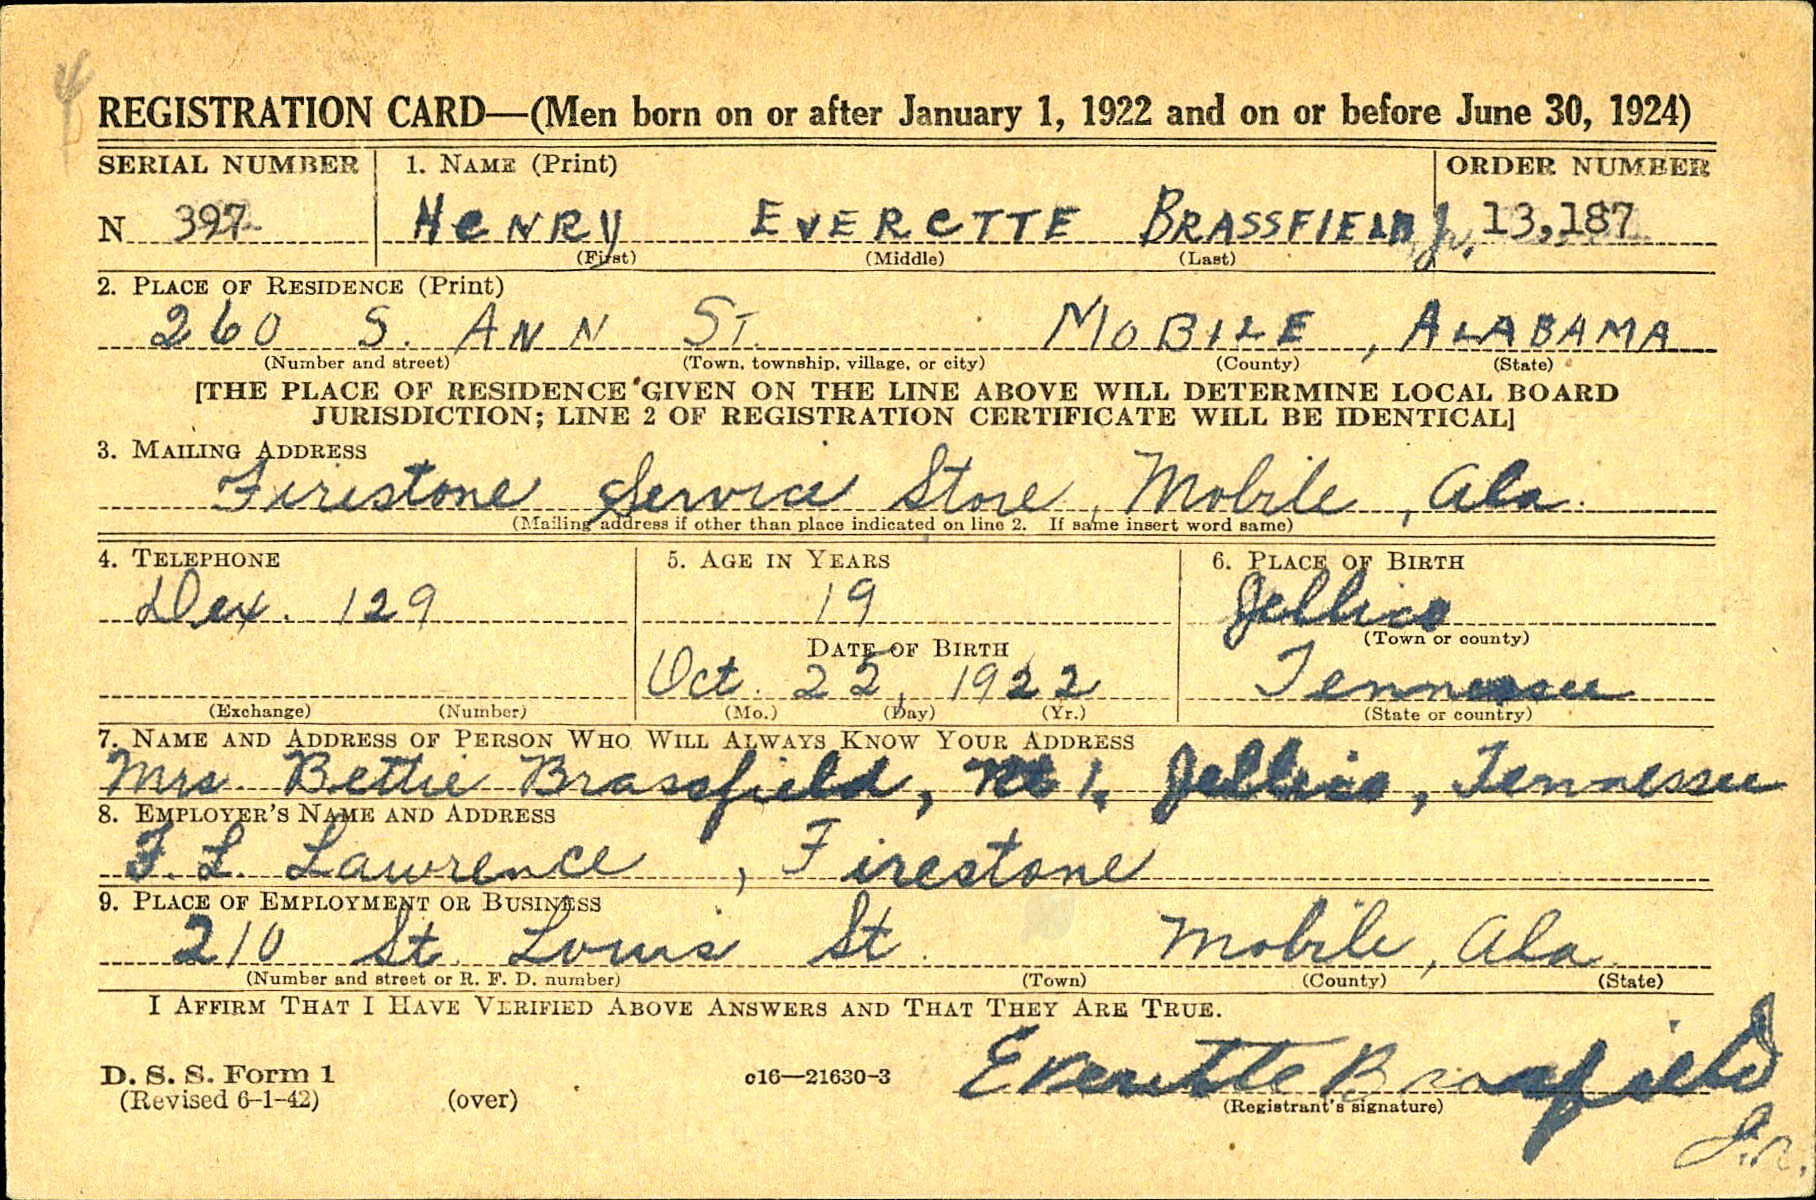 REGISTRATION CARD—(Men born on or after January 1, 1922 and on or before June 30, 1924)
SERIAL NUMBER 1. NAME (Print) ORDER NUMBER
N 397 HENRY EVERETTE BRASSFIELD Jr. 13,187
(First) (Middle) (Last)
2. PLACE OF RESIDENCE (Print)
260 S. ANN ST. MOBILE, ALABAMA
(Number and street) (Town, township, village, or city) (County) (State)
[THE PLACE OF RESIDENCE GIVEN ON THE LINE ABOVE WILL DETERMINE LOCAL BOARD
JURISDICTION; LINE 2 OF REGISTRATION CERTIFICATE WILL BE IDENTICAL]
3. MAILING ADDRESS
Firestone Service Store, Mobile, Ala.
(Mailing address if other than place indicated on line 2. If same insert word same)
4. TELEPHONE 5. AGE IN YEARS 6. PLACE OF BIRTH
Dex. 129 19 Jellico
(Town or county)
DATE OF BIRTH
Oct. 25, 1922 Tennessee
(Exchange) (Number) (Mo.) (Day) (Yr.) (State or country)
7. NAME AND ADDRESS OF PERSON WHO WILL ALWAYS KNOW YOUR ADDRESS
Mrs. Bettie Brassfield, Rt 1, Jellico, Tennessee
8. EMPLOYER'S NAME AND ADDRESS
F. L. Lawrence, Firestone
9. PLACE OF EMPLOYMENT OR BUSINESS
210 St. Louis St. Mobile, Ala.
(Number and street or R. F. D. number) (Town) (County) (State)
I AFFIRM THAT I HAVE VERIFIED ABOVE ANSWERS AND THAT THEY ARE TRUE.
D. S. S. Form 1 c16—21630-3 Everette Brassfield
(Revised 6-1-42) (over) (Registrant's signature)
Jr.